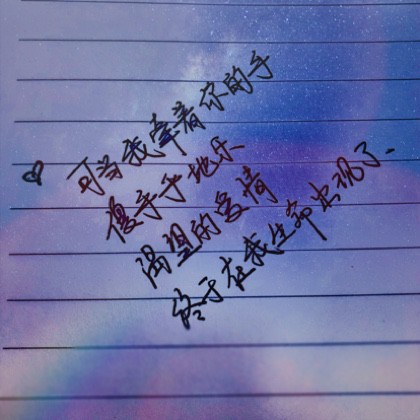 可当我牵着你的手
傻乎乎地乐
渴望的爱情
终于在我生命出现了.